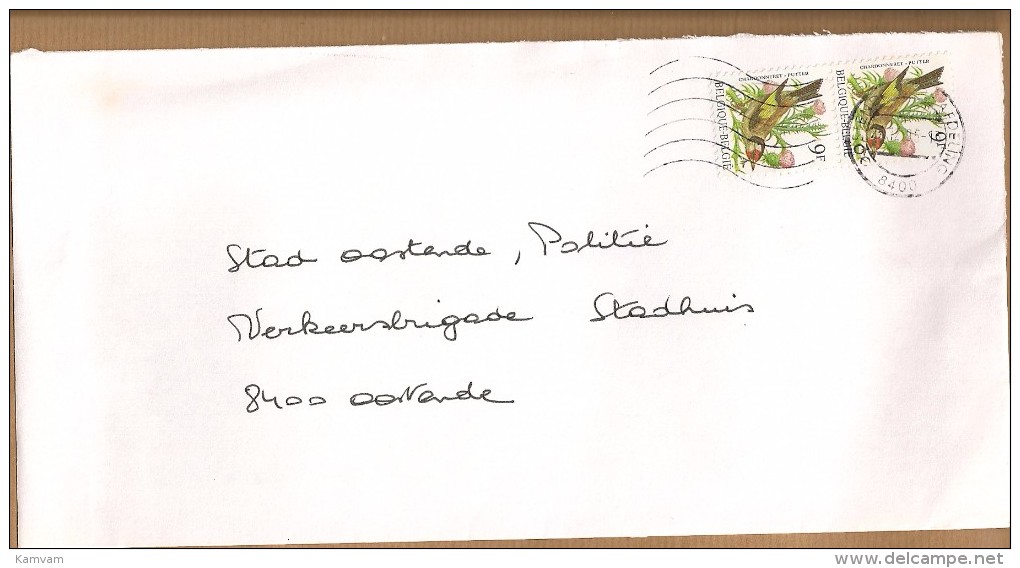 CHARDONNERET - PUTTER
BELGIQUE-BELGIË
9F
CHARDONNERET - PUTTER
BELGIQUE-BELGIË
9F
8400
Stad Oostende, Politie
Verkeersbrigade Stadhuis
8400 Oostende
Kamvam
www.delcampe.net